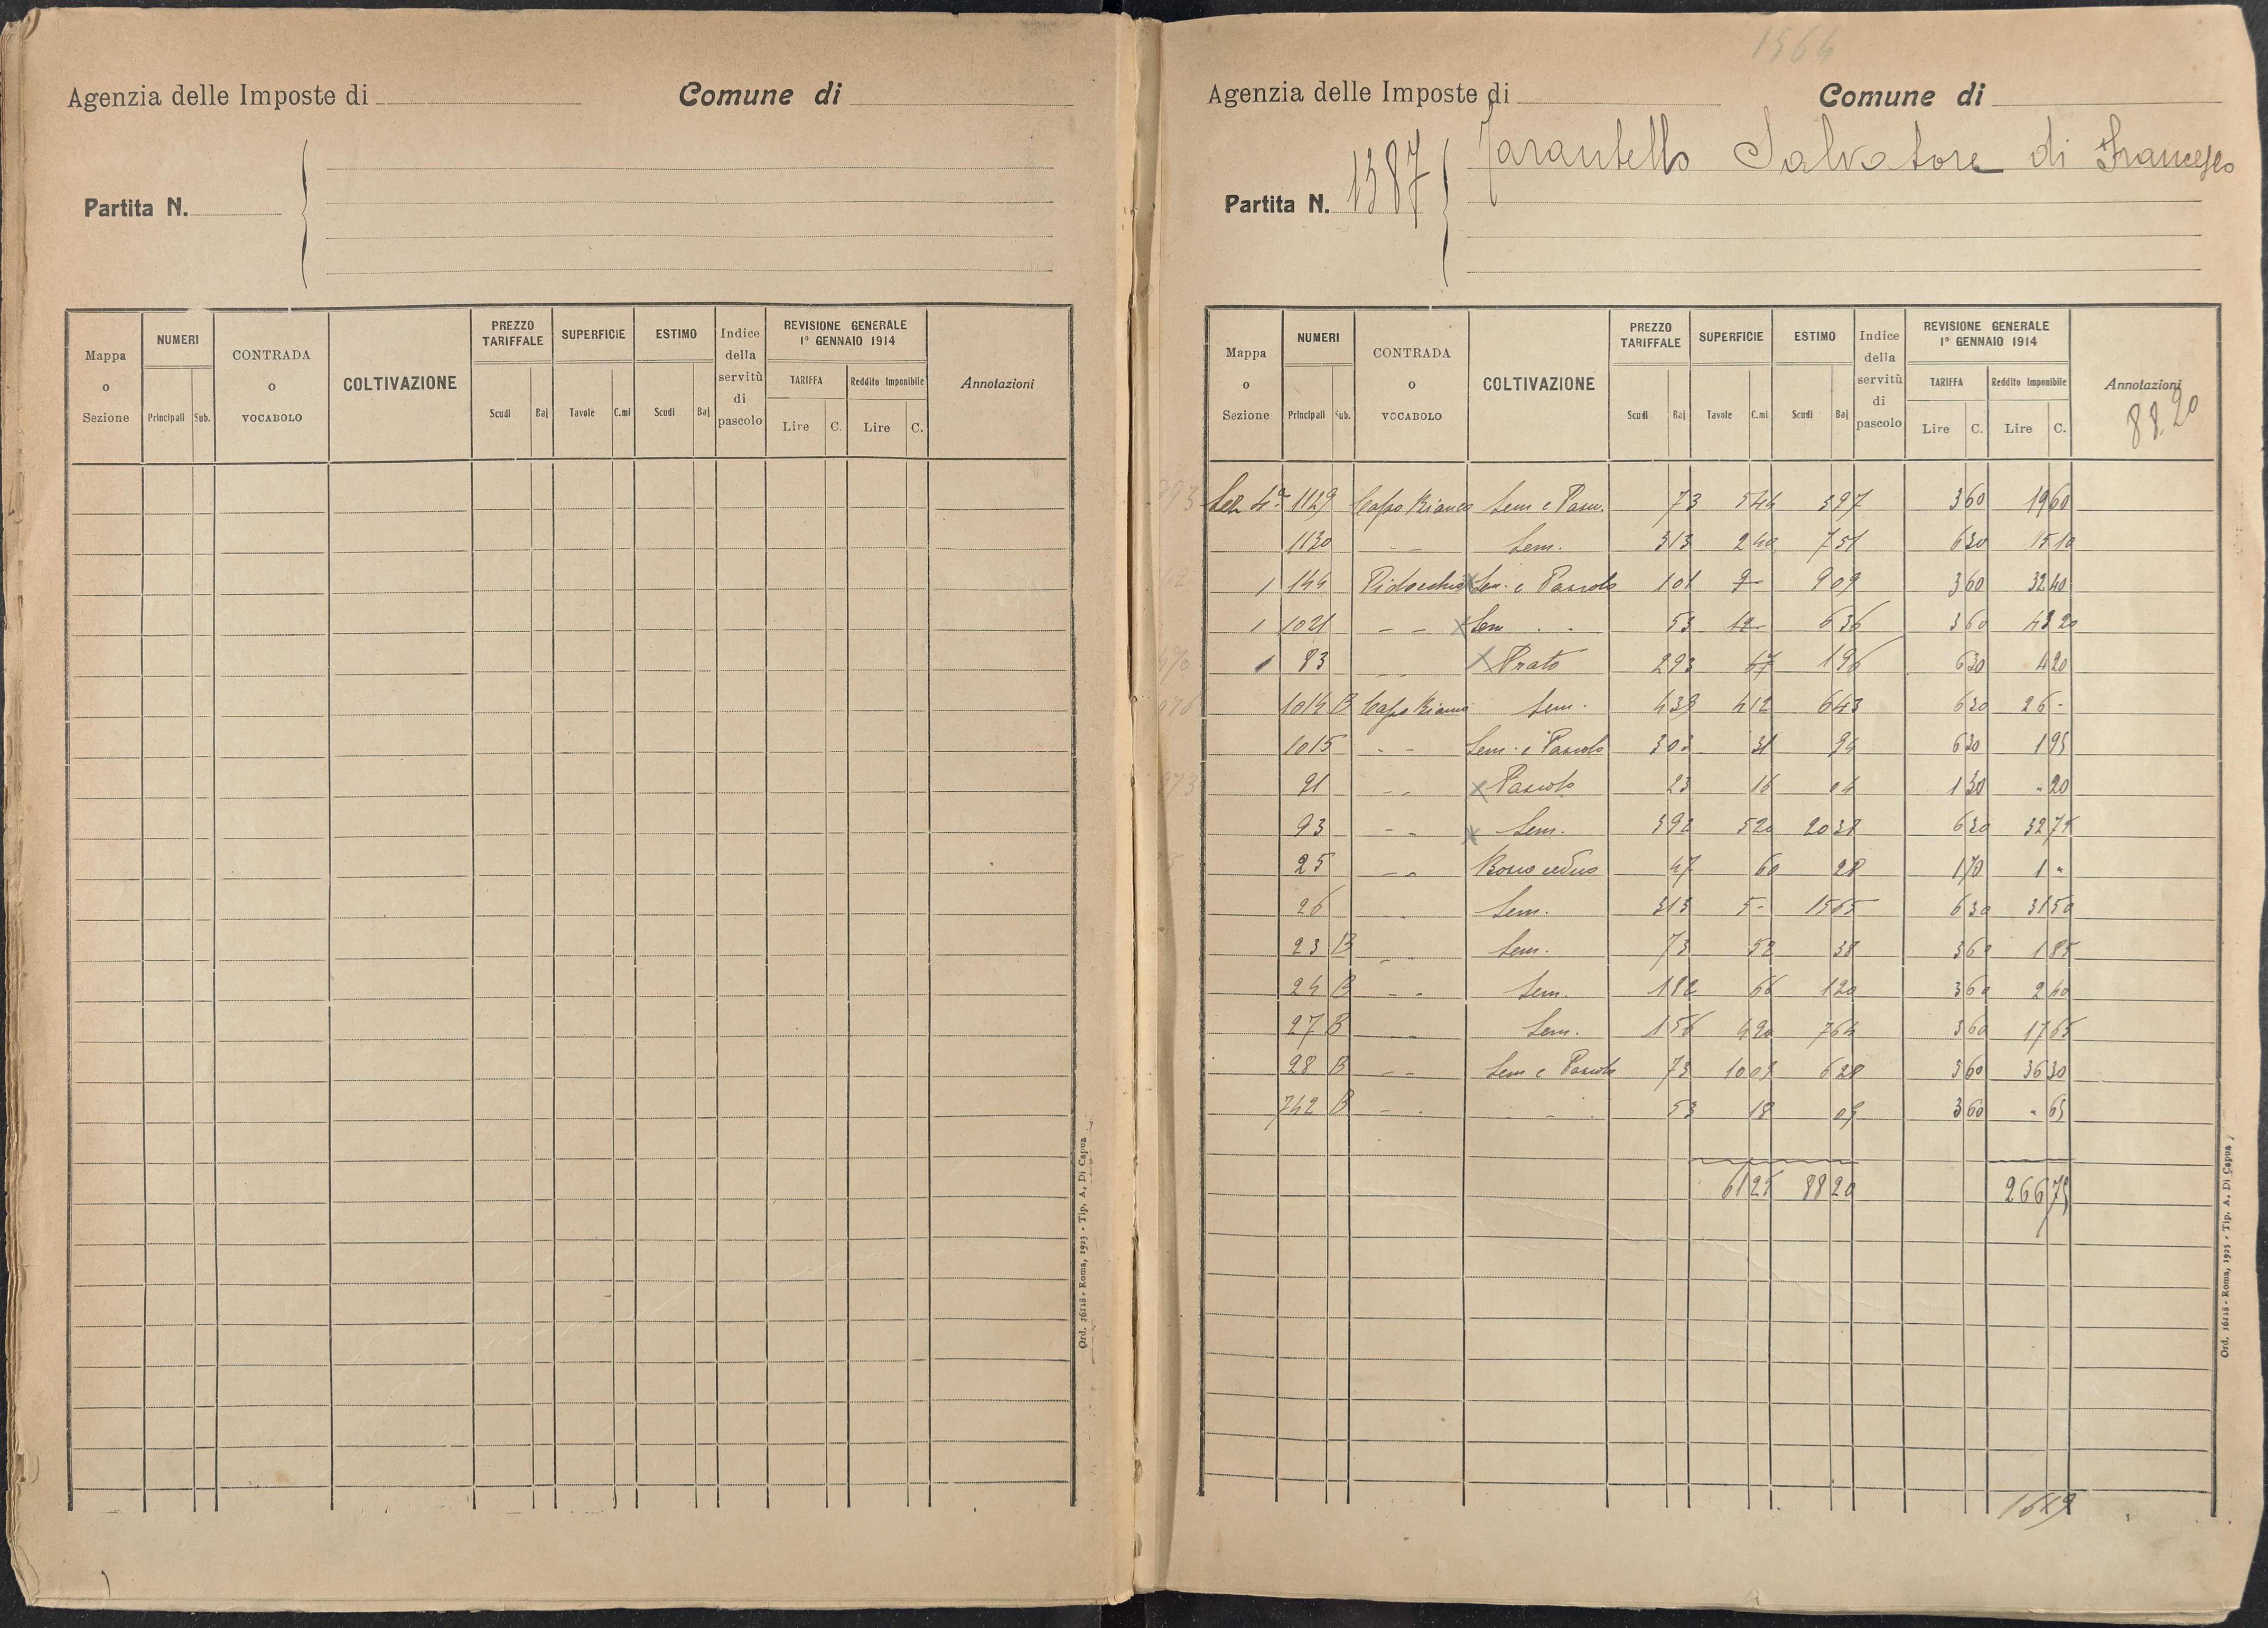 Agenzia delle Imposte di Comune di
Partita N.
Mappa o Sezione NUMERI Principali Sub. CONTRADA o VOCABOLO COLTIVAZIONE PREZZO TARIFFALE Scudi Baj SUPERFICIE Tavole C.mi ESTIMO Scudi Baj Indice della servitù di pascolo REVISIONE GENERALE 1° GENNAIO 1914 TARIFFA Lire C. Reddito Imponibile Lire C. Annotazioni
Ord. 16118 - Roma, 1923 - Tip. A. Di Capua
1564
Agenzia delle Imposte di Comune di
Partita N. 1387 Tarantello Salvatore di Francesco
Mappa o Sezione NUMERI Principali Sub. CONTRADA o VOCABOLO COLTIVAZIONE PREZZO TARIFFALE Scudi Baj SUPERFICIE Tavole C.mi ESTIMO Scudi Baj Indice della servitù di pascolo REVISIONE GENERALE 1° GENNAIO 1914 TARIFFA Lire C. Reddito Imponibile Lire C. Annotazioni
88.20
Sez 4ª 1129 Capo Bianco Sem e Pasc. 73 5 44 3 97 3 60 19 60
1130 - - Sem. 3 13 2 40 7 51 6 30 15 10
1 144 Pidocchio Sem. e Pascolo 1 01 9 - 9 09 3 60 32 40
1 1021 - - Sem - - 53 12 - 6 36 3 60 43 20
1 83 - - Prato 2 93 67 1 96 6 30 4 20
1014 B Capo Bianco Sem. 4 12 6 30 26 -
1015 - - Sem. e Pascolo 3 03 31 94 6 30 1 95
91 - - Pascolo 23 16 04 1 30 " 20
93 - - Sem. 3 92 5 20 20 38 6 30 32 75
25 - - Bosco ceduo 47 60 28 1 70 1 "
26 Sem. 3 13 5 - 15 65 6 30 31 50
23 B - - Sem. 73 52 38 3 60 1 85
24 B - - Sem. 1 82 66 1 20 3 60 2 40
27 B - - Sem. 1 56 4 90 7 64 3 60 17 65
28 B - - Sem e Pascolo 73 10 09 3 60 36 30
742 B - - - - 53 18 09 3 60 " 65
61 25 88 20 266 75
1619
Ord. 16118 - Roma, 1923 - Tip. A. Di Capua